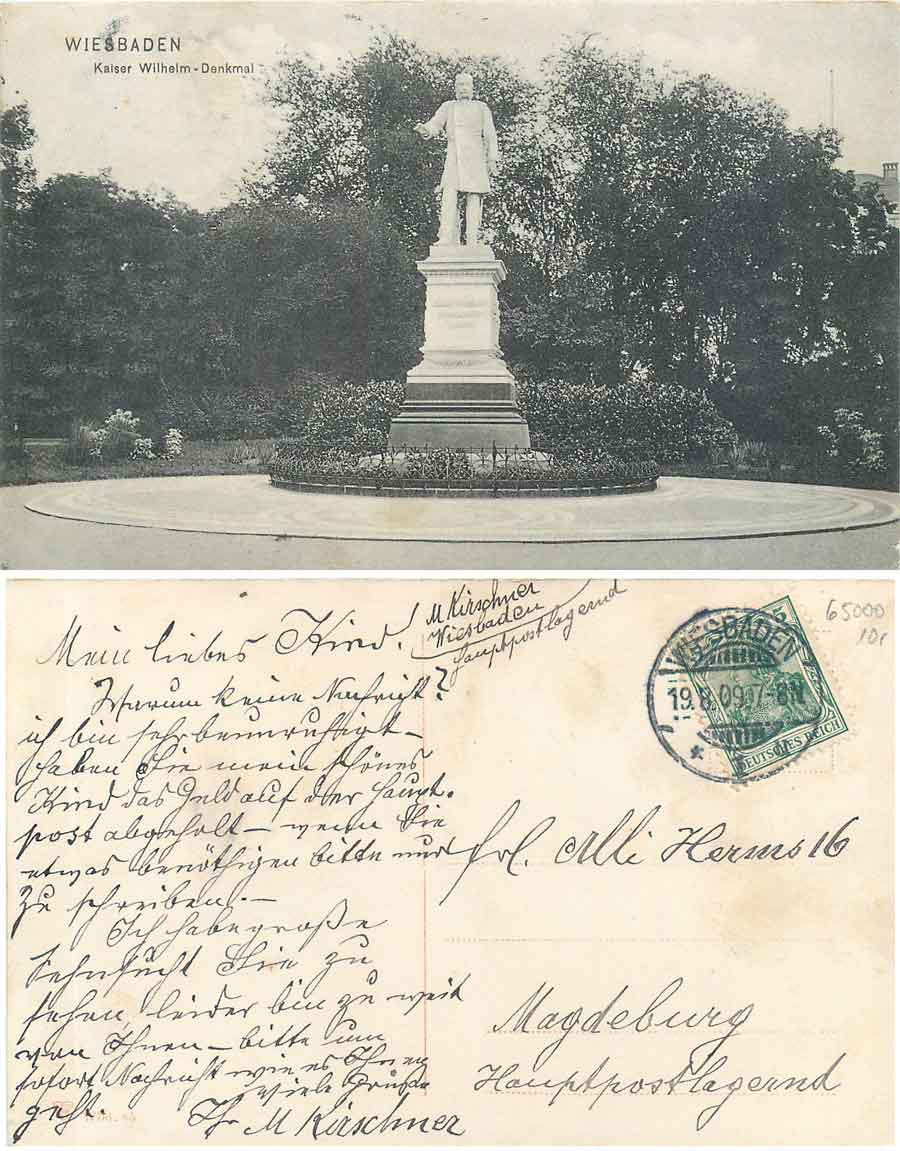 WIESBADEN
Kaiser Wilhelm-Denkmal
M Kirschner
Wiesbaden
hauptpostlagernd
Mein liebes Kind!
Warum keine Nachricht?
ich bin sehr beunruhigt –
haben Sie mein schönes
Kind das Geld auf der Haupt-
post abgeholt – wenn Sie
etwas benöthigen bitte nur
zu schreiben. –
Ich habe große
Sehnsucht Sie zu
sehen leider bin zu weit
von Ihnen – bitte um
sofort Nachricht wie es Ihnen
geht. viele Grüße
Ihr M Kirschner
WIESBADEN
19.8.09.7-8N
DEUTSCHES REICH
65000
10,
frl. Mli Herms 16
Magdeburg
Hauptpostlagernd